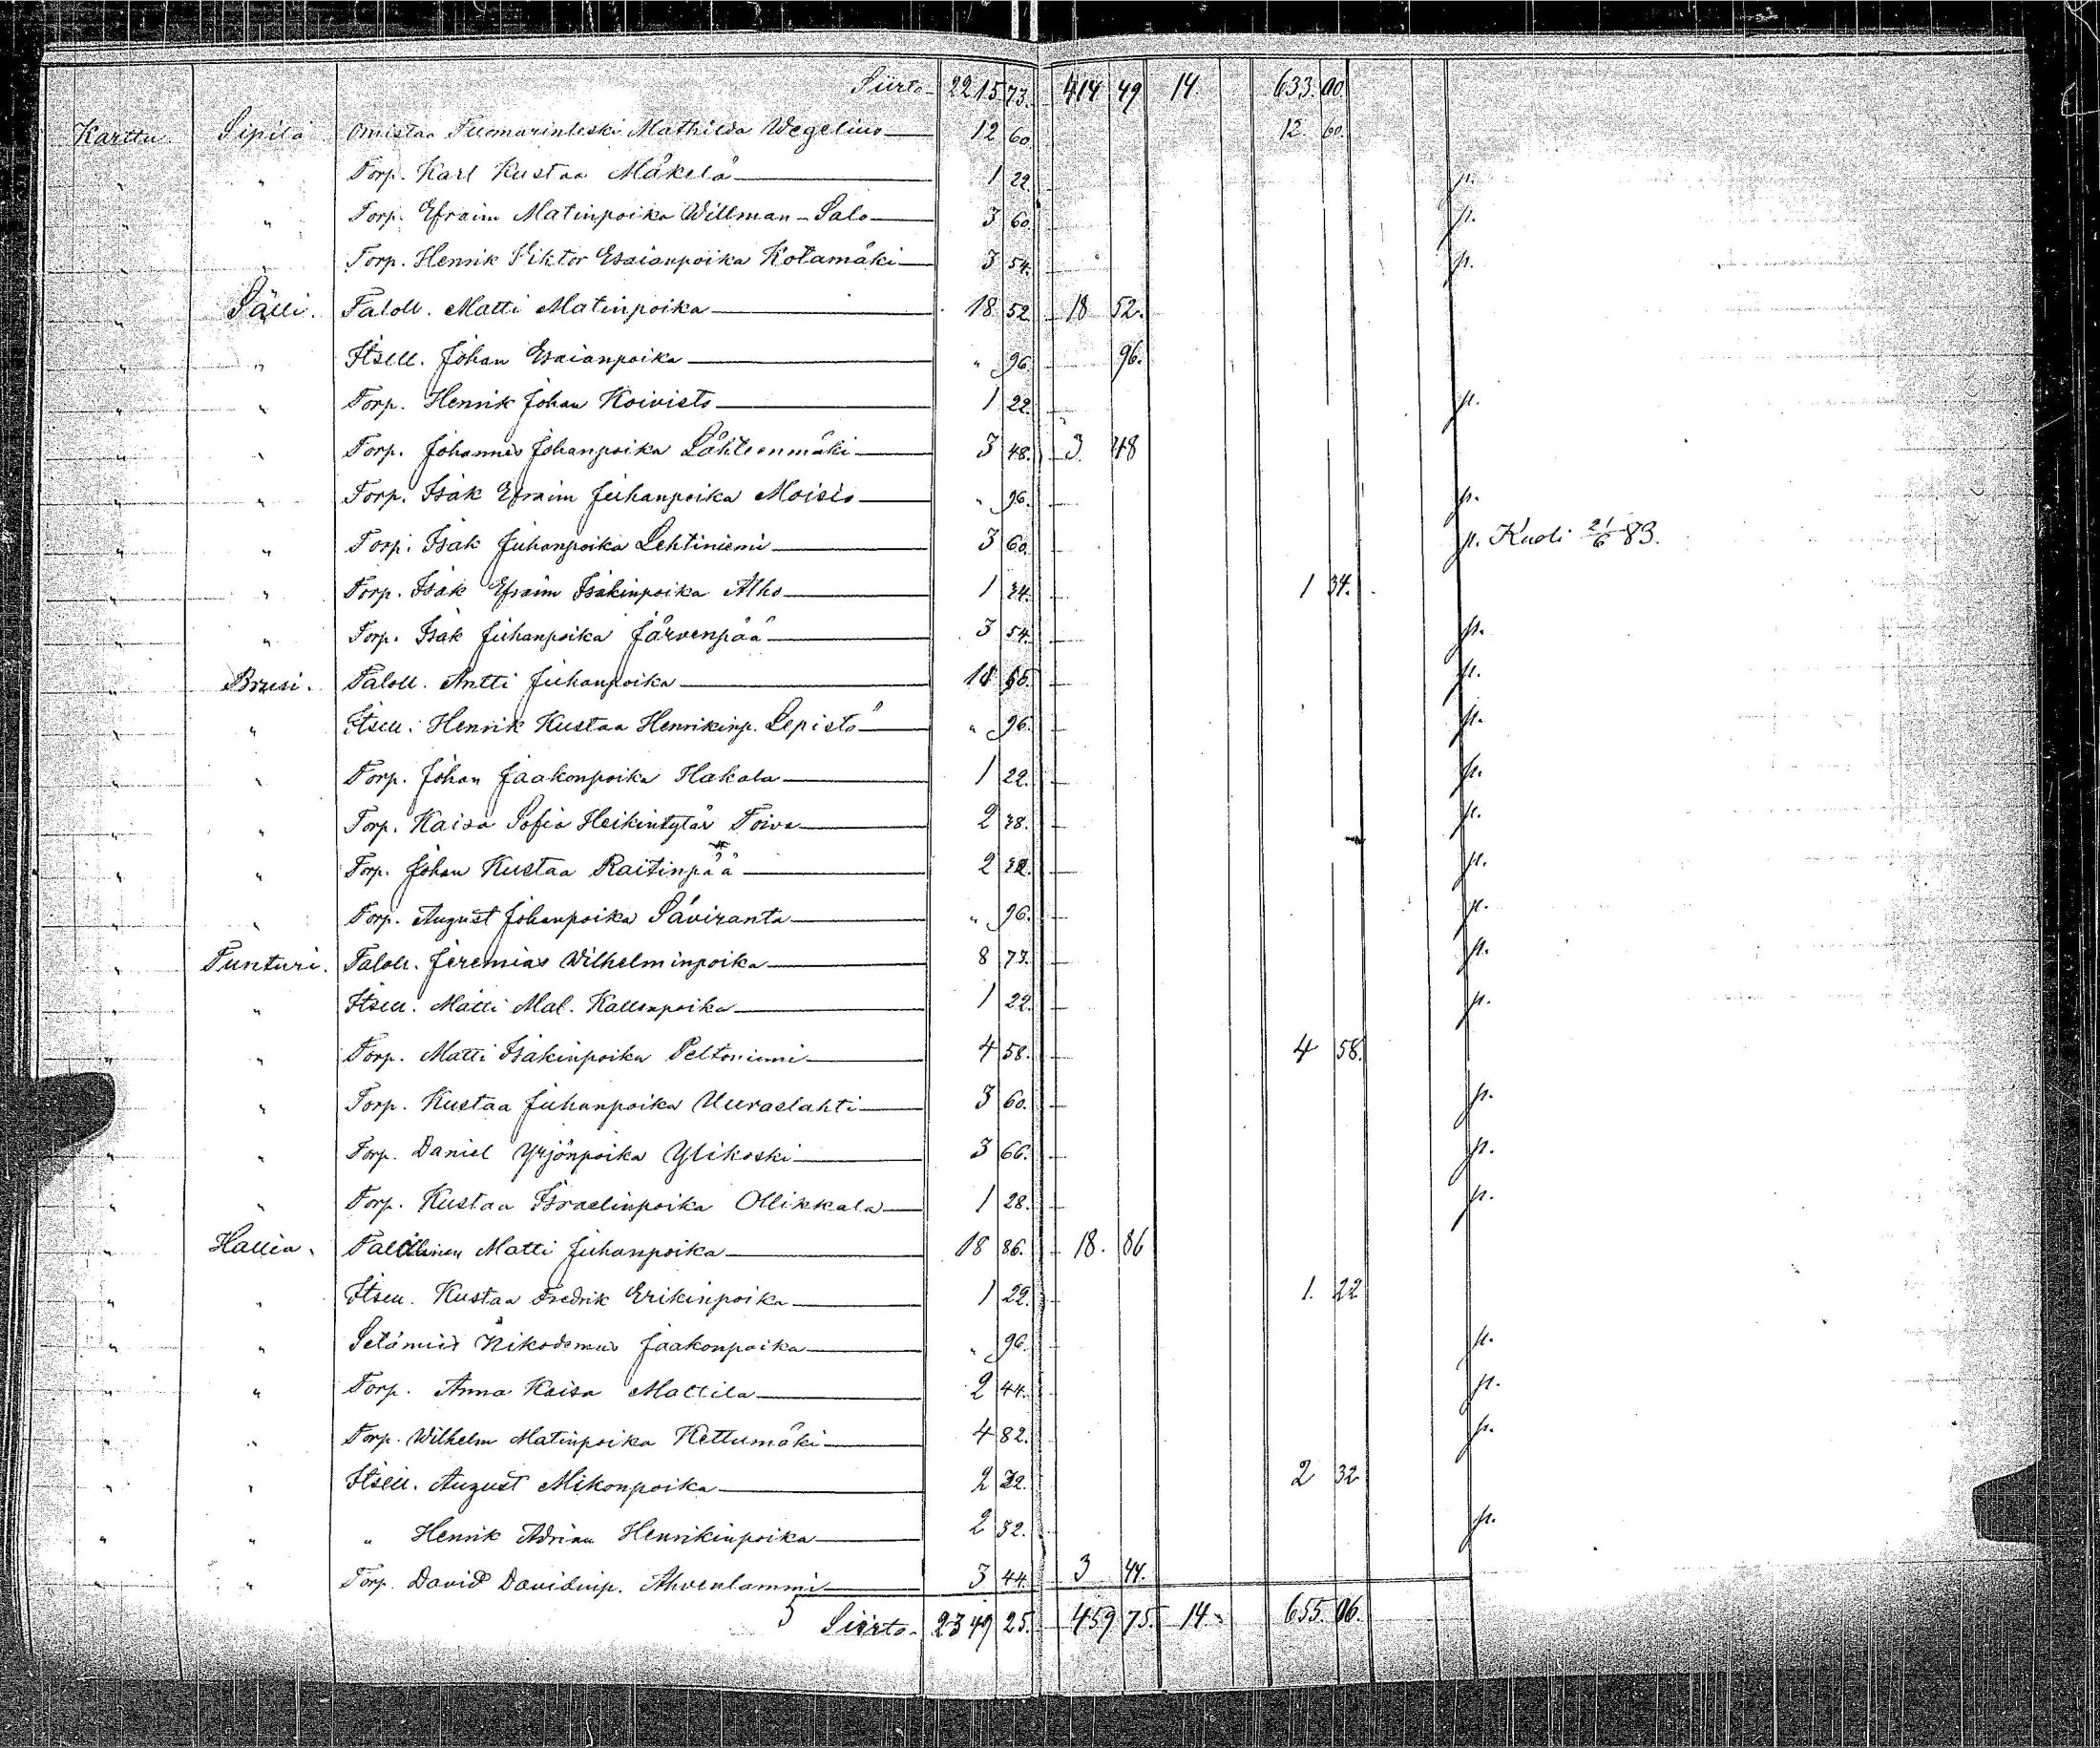 Siirto 2215 73. 414 49 14. 633. 00.
Karttu Sipilä Omistaa Tuomarinleski Mathilda Wegelius 12 60 12. 60.
" " Torp. Karl Kustaa Mäkelä 1 22 p.
" " Torp. Efraim Matinpoika Willman-Salo 3 60. p.
" " Torp. Henrik Viktor Esaianpoika Kotamäki 3 54. p.
" Sälli. Taloll. Matti Matinpoika 18 52 18 52.
" " Itsell. Johan Esaianpoika " 96 96.
" " Torp. Henrik Johan Koivisto 1 22 p.
" " Torp. Johannes Johanpoika Lähteenmäki 3 48. 3. 48
" " Torp. Isak Efraim Juhanpoika Moisio " 96. p.
" " Torp. Isak Juhanpoika Lehtiniemi 3 60. p. Kuoli 21/6 83.
" " Torp. Isak Efraim Isakinpoika Alho 1 34. 1 34.
" " Torp. Isak Juhanpoika Järvenpää 3 54. p.
" Brusi. Taloll. Antti Juhanpoika p.
" " Itsell. Henrik Kustaa Henrikinp. Lepistö " 96. p.
" " Torp. Johan Jaakonpoika Hakala 1 22. p.
" " Torp. Kaisa Sofia Heikintytär Toiva 2 38. p.
" " Torp. Johan Kustaa Raitinpää 2 p.
" " Torp. August Johanpoika Saviranta " 96. p.
" Tunturi. Taloll. Jeremias Wilhelminpoika 8 73. p.
" " Itsell. Matti Mat. Kallenpoika 1 22. p.
" " Torp. Matti Isakinpoika Peltoniemi 4 58. 4 58.
" " Torp. Kustaa Juhanpoika Uuraslahti 3 60. p.
" " Torp. Daniel Yrjönpoika Ylikoski 3 66. p.
" " Torp. Kustaa Israelinpoika Ollikkala 1 28. p.
" Hallia. Talollinen Matti Juhanpoika 18 86. 18. 86
" " Itsell. Kustaa Fredrik Erikinpoika 1 22. 1. 22
" " Setämies Nikodemus Jaakonpoika " 96. p.
" " Torp. Anna Kaisa Mattila 2 44. p.
" " Torp. Wilhelm Matinpoika Kettumäki 4 82. p.
" " Itsell. August Mikonpoika 2 32. 2 32
" " " Henrik Adrian Henrikinpoika 2 32. p.
" " Torp. David Davidinp. Ahvenlammi 3 44. 3 44.
5 Siirto. 2349 25. 459 75. 14. 655. 06.